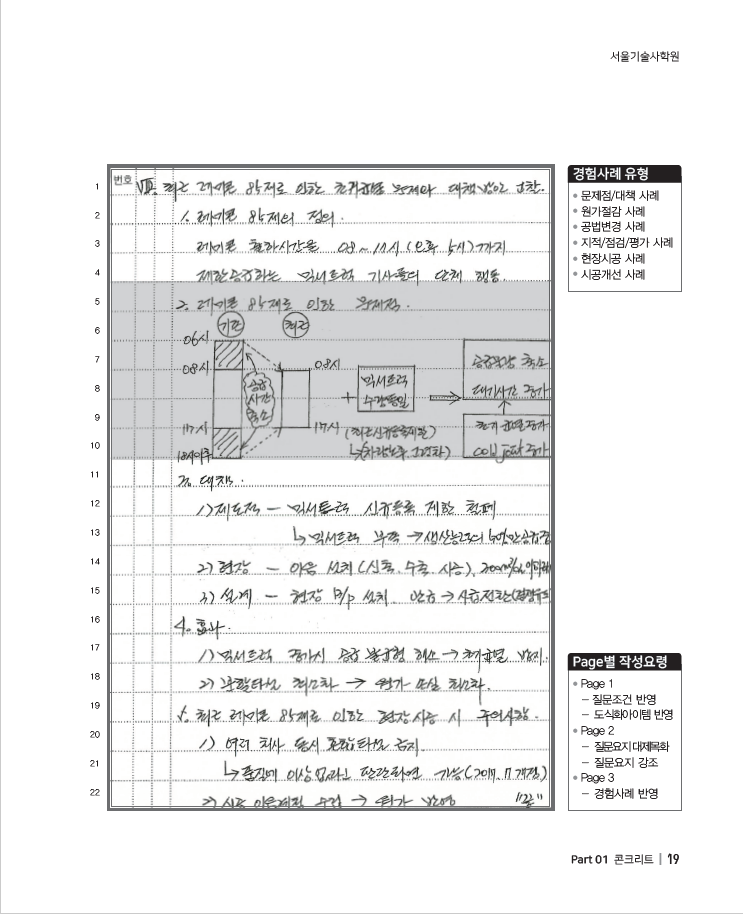 서울기술사학원
번호
1 Ⅷ. 최근 레미콘 8.5제로 인한 초기균열 문제와 대책방안 고찰.
2 1. 레미콘 8.5제의 정의.
3 레미콘 출하시간을 08~17시 (오후 5시)까지
4 제한공급하는 믹서트럭 기사들의 단체 행동.
5 2. 레미콘 8.5제로 인한 문제점.
6 기존 최근
06시
7 08시 08시 공급물량 축소
8 공급 시간 축소 + 믹서트럭 수량동일 대기시간 증가
9 17시 17시 (최근신규등록제한) 초기균열증가
10 18시이후 cold joint 증가
11 3. 대책.
12 1) 제도적 - 믹서트럭 신규등록 제한 철폐
13 ↳ 믹서트럭 부족 →
14 2) 현장 - 이음 설치 (신축, 수축, 시공),
15 3) 설계 - 현장 B/P 설치.
16 4. 효과.
17 1) 믹서트럭 증가시 공급 불균형 해소 → 초기균열 방지.
18 2) 분할타설 최소화 → 원가 손실 최소화.
19 5. 최근 레미콘 8.5제로 인한 현장시공 시 주의사항.
20 1) 여러 회사 동시 혼합타설 금지.
21 ↳ 품질에 이상 없다고 판단되면 가능 (2017. 11 개정)
22 2) 시공이음계획 수립 → 원가 반영 "끝"
경험사례 유형
• 문제점/대책 사례
• 원가절감 사례
• 공법변경 사례
• 지적/점검/평가 사례
• 현장시공 사례
• 시공개선 사례
Page별 작성요령
• Page 1
– 질문조건 반영
– 도식화아이템 반영
• Page 2
– 질문요지 대제목화
– 질문요지 강조
• Page 3
– 경험사례 반영
Part 01 콘크리트 | 19